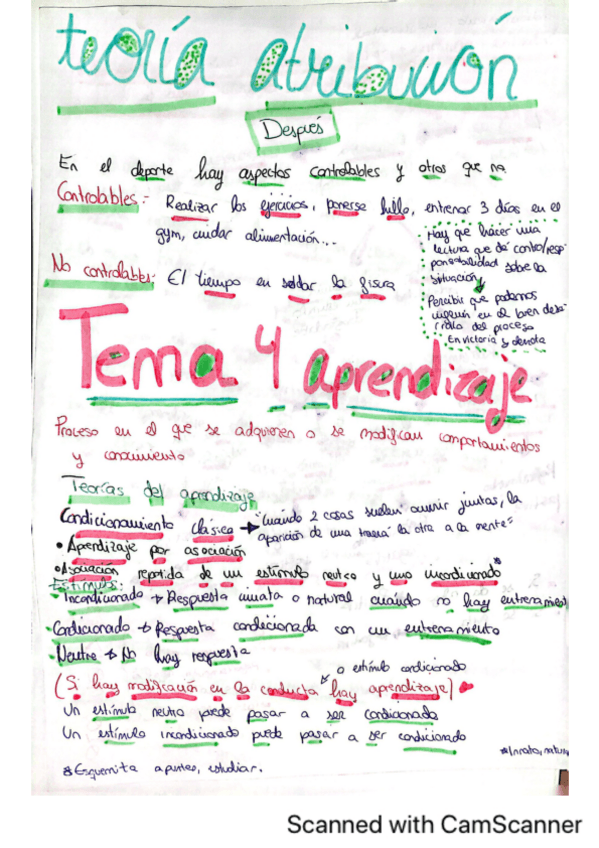 teoría atribución
Después
En el deporte hay aspectos controlables y otros que no
Controlables:- Realizar los ejercicios, ponerse hielo, entrenar 3 días en el
gym, cuidar alimentación...
Hay que hacer una
lectura que dé control/res
ponsabilidad sobre la
situación
No controlables: El tiempo en soldar la fisura
Percibir que podemos
influir en el buen desa-
rrollo del proceso
En victoria y derrota
Tema 4 aprendizaje
Proceso en el que se adquieren o se modifican comportamientos
y conocimiento
Teorías del aprendizaje
Condicionamiento clásico → "Cuando 2 cosas suelen ocurrir juntas, la
aparición de una traerá la otra a la mente"
• Aprendizaje por asociación
• Asociación repetida de un estímulo neutro y uno incondicionado*
Estímulos:
- Incondicionado → Respuesta innata o natural cuando no hay entrenamient
- Condicionado → Respuesta condicionada con un entrenamiento
- Neutre → No hay respuesta
o estímulo condicionado
(Si hay modificación en la conducta hay aprendizaje)
Un estímulo neutro puede pasar a ser condicionado
Un estímulo incondicionado puede pasar a ser condicionado
*Innato, natura
*Esquemita apuntes, estudiar.
Scanned with CamScanner